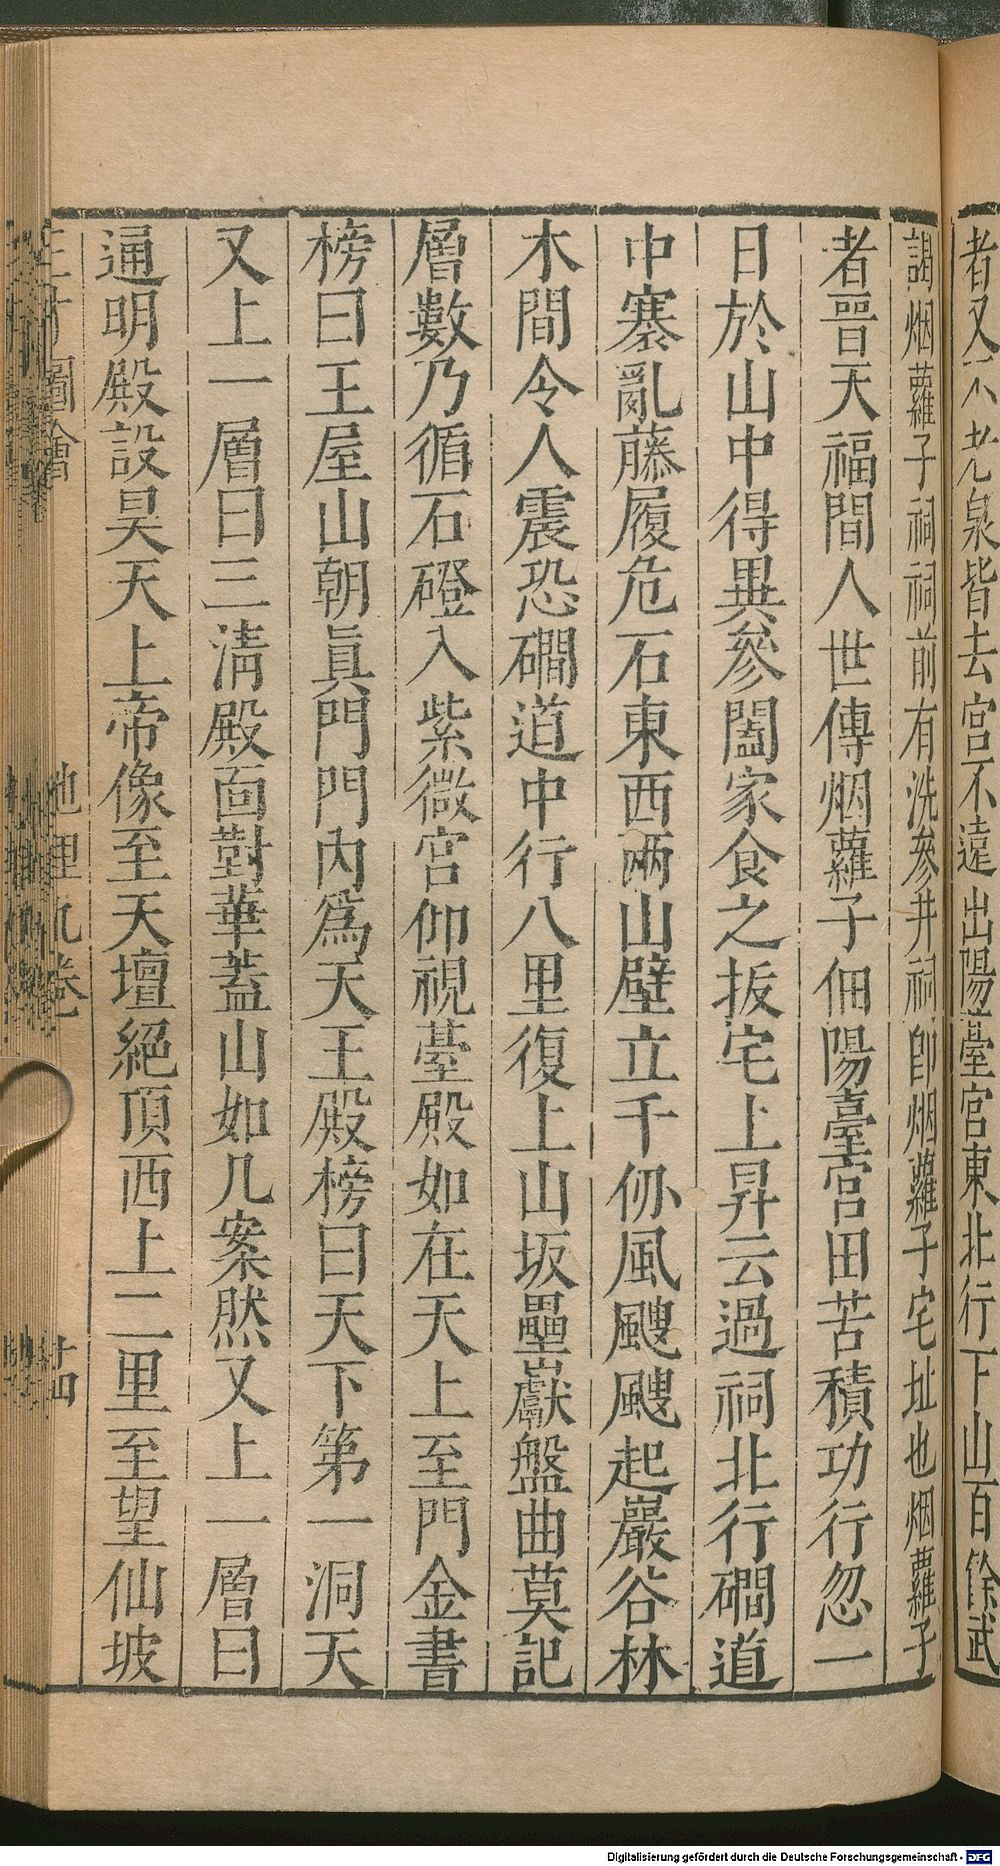 者又不老泉皆去宮不遠出陽臺宮東北行下山百餘武
謁烟蘿子祠祠前有洗參井祠卽烟蘿子宅址也烟蘿子
者晉天福間人世傳烟蘿子佃陽臺宮田苦積功行忽一
日於山中得異參闔家食之扳宅上昇云過祠北行磵道
中褰亂藤履危石東西兩山壁立千仞風颼颼起巖谷林
木間令人震恐磵道中行八里復上山坂壘巘盤曲莫記
層數乃循石磴入紫微宮仰視臺殿如在天上至門金書
榜曰王屋山朝眞門門內爲天王殿榜曰天下第一洞天
又上一層曰三淸殿面對華蓋山如几案然又上一層曰
通明殿設昊天上帝像至天壇絕頂西上二里至望仙坡
三才圖會 地理九卷 十四
Digitalisierung gefördert durch die Deutsche Forschungsgemeinschaft - DFG